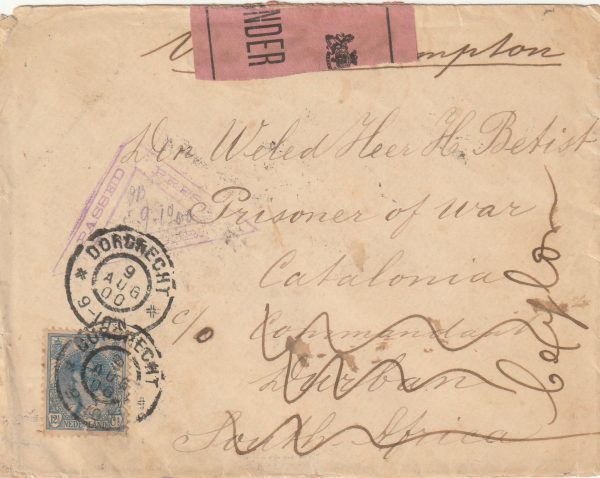 UNDER
Southampton
Den Weled Heer H. Betist
Prisoner of War
Catalonia
c/o Commandant
Durban
South Africa
Ceylon
PASSED
DORDRECHT
9
AUG
00
9-10
DORDRECHT
9
AUG
00
12½
NEDERLAND